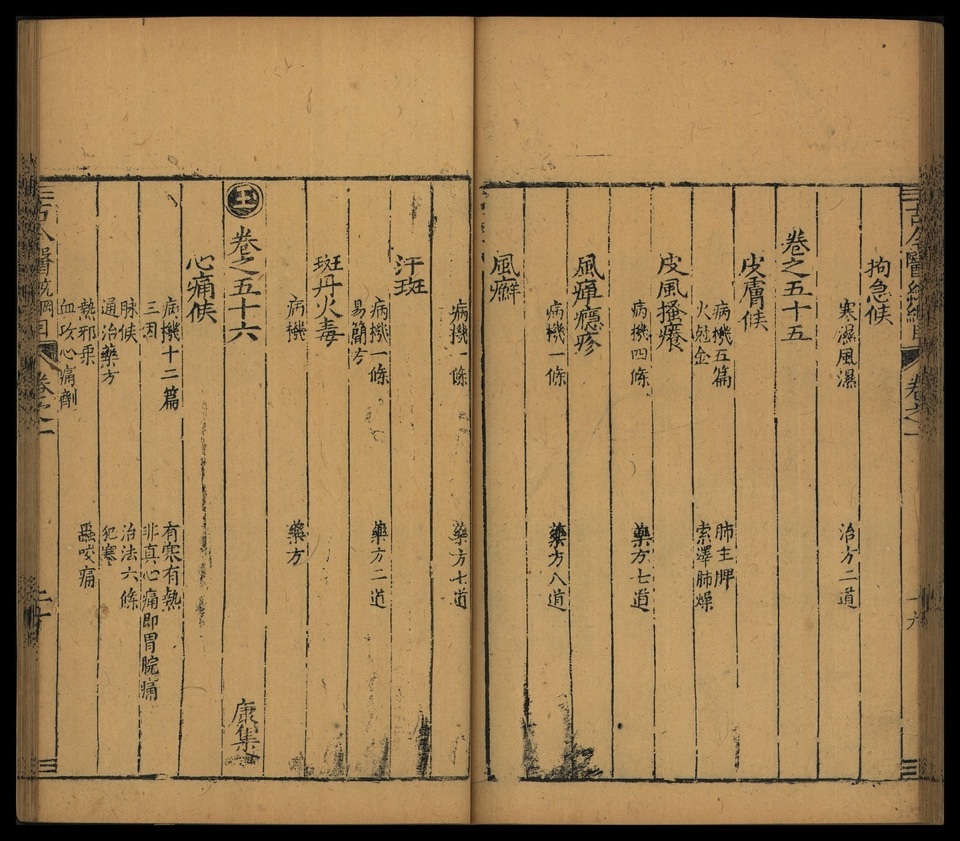 拘急候
寒濕風濕 治方二道
卷之五十五
皮膚候
病機五篇 肺主脾
火尅金 索澤肺燥
皮風搔癢
病機四條 藥方七道
風癉癮疹
病機一條 藥方八道
風癬
病機一條 藥方七道
汗斑
病機一條 藥方二道
易簡方
斑丹火毒
病機 藥方
王 卷之五十六 康集
心痛候
病機十二篇 有寒有熱
三因 非真心痛即胃脘痛
脉候 治法六條
通治藥方 犯寒
熱邪乘 蟲咬痛
血攻心痛劑
古今醫統綱目 卷之一